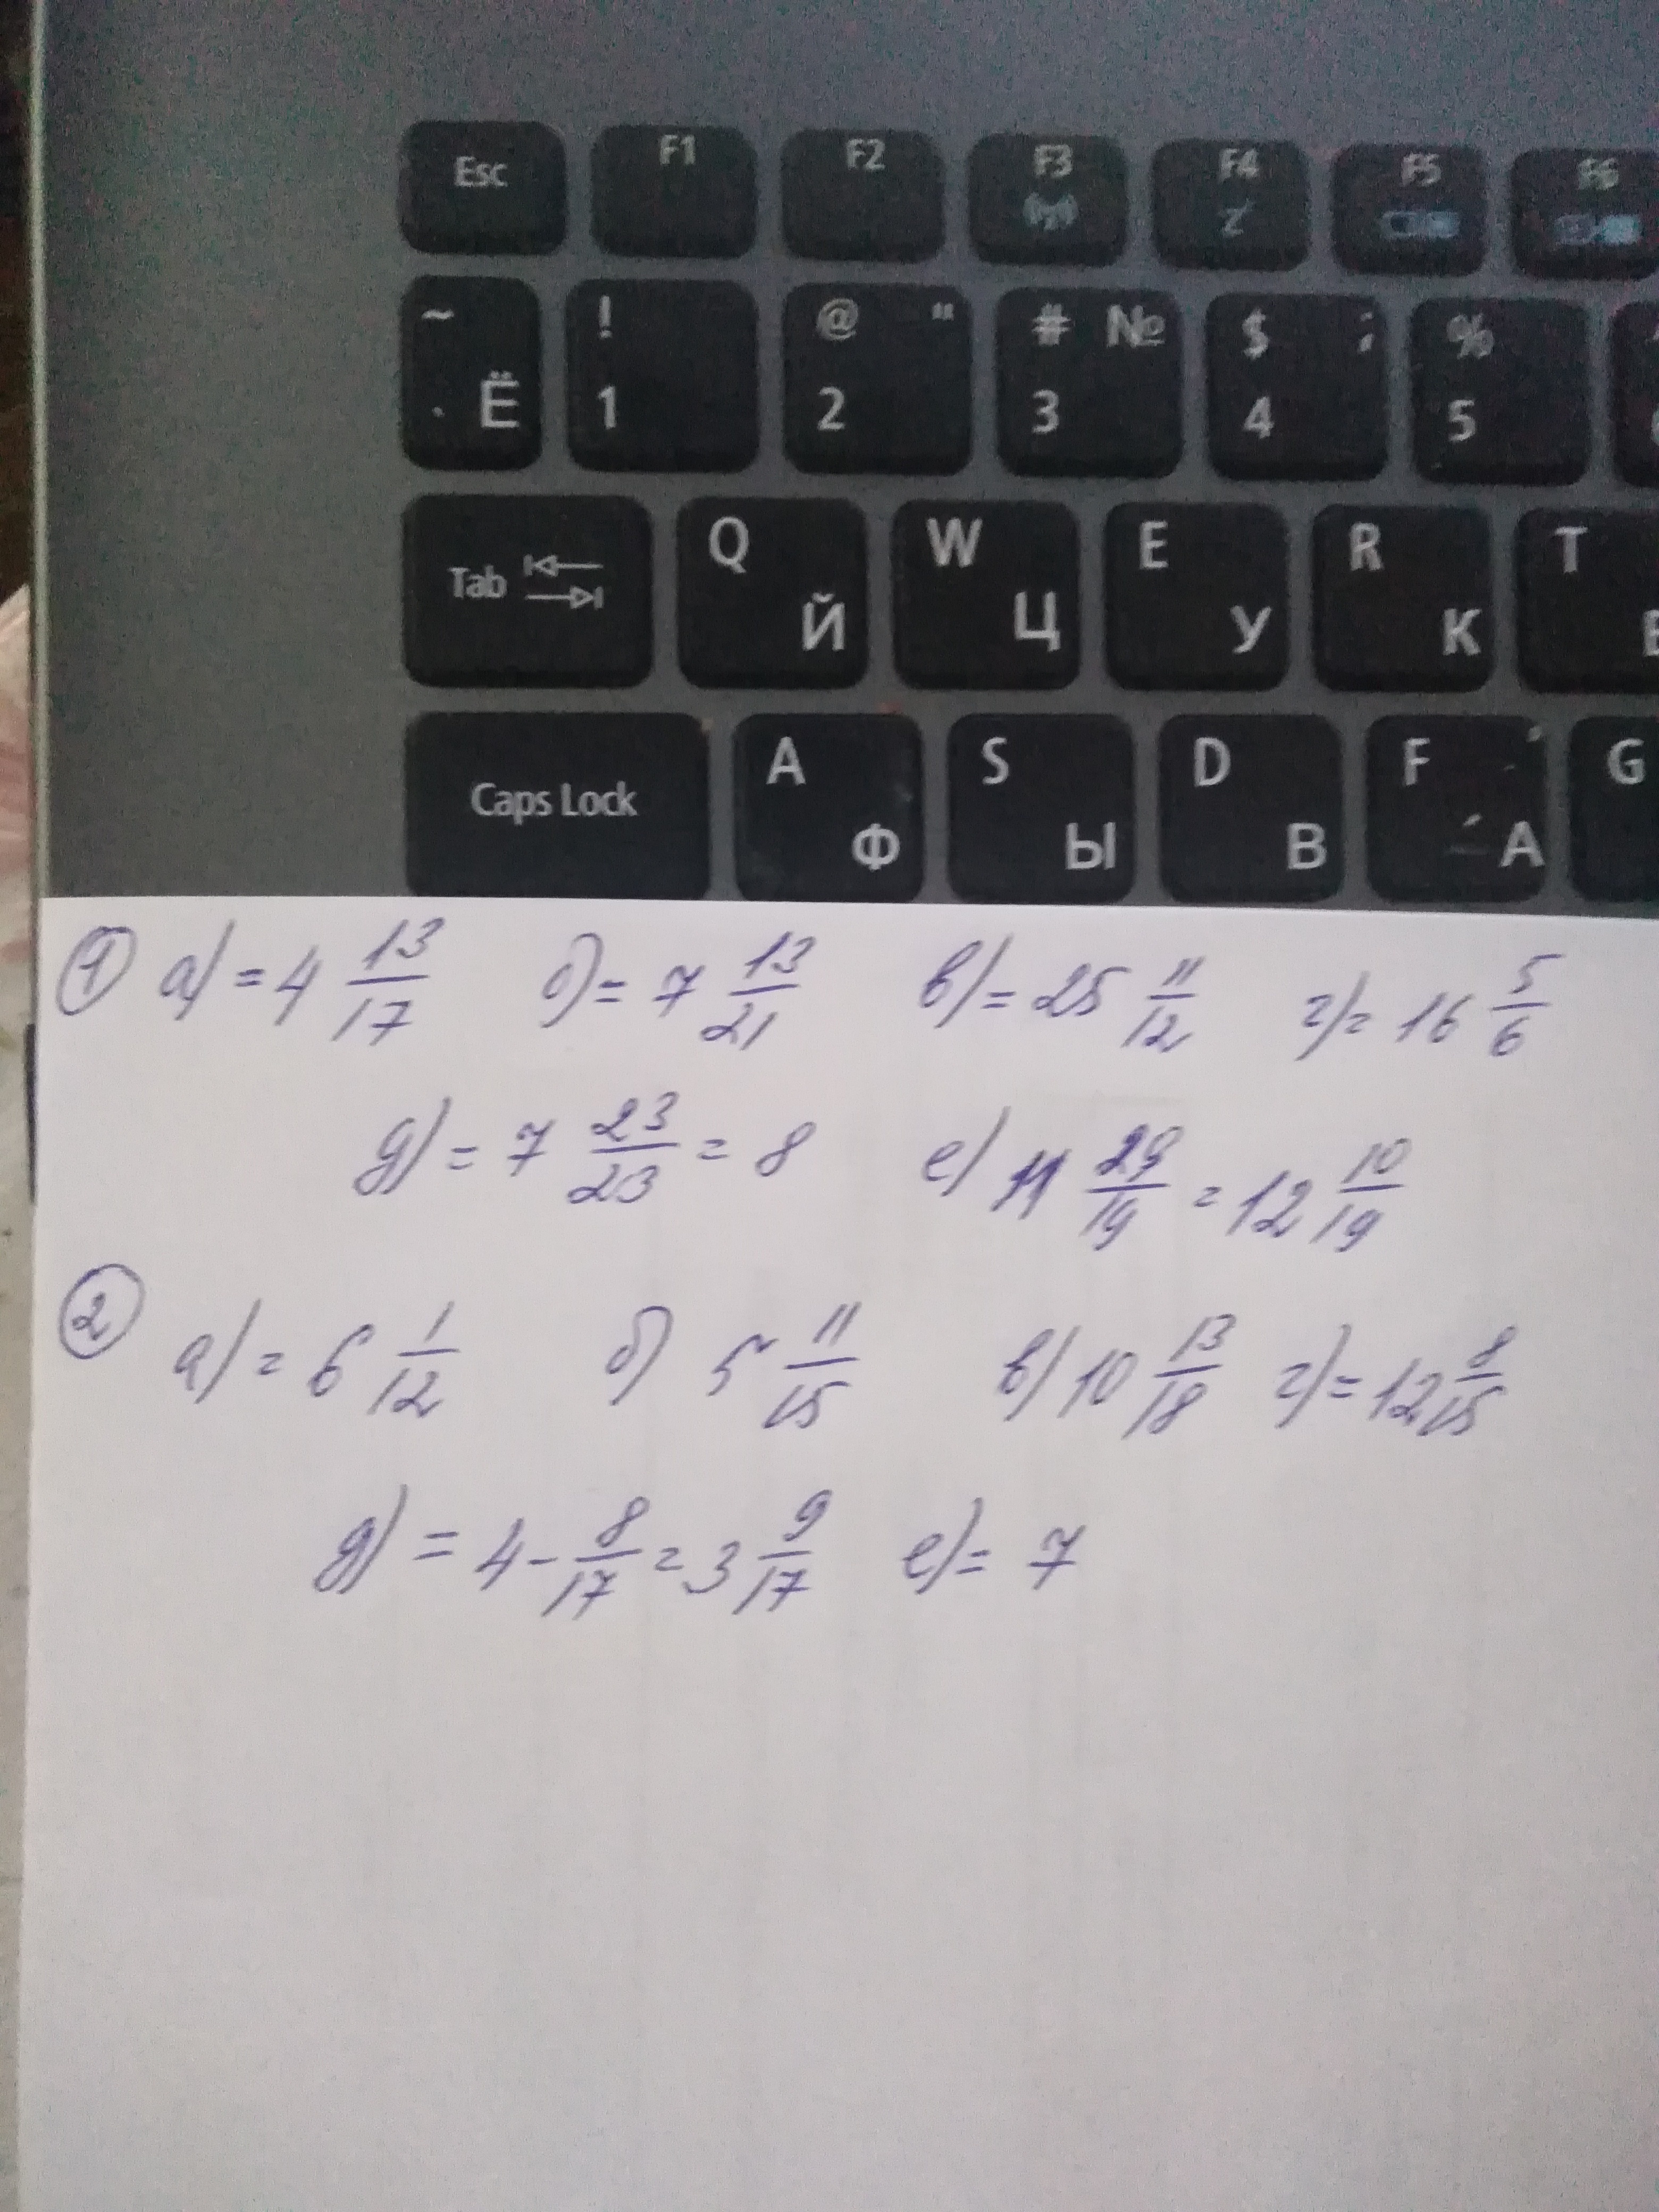 Esc F1 F2 F3 F4 F5 F6
~ Ё ! 1 @ " 2 # № 3 $ ; 4 % 5
Tab Q Й W Ц E У R К T
Caps Lock A Ф S Ы D В F А G
① а) = 4 13/17 б) = 7 13/21 в) = 25 11/12 г) = 16 5/6
д) = 7 23/23 = 8 е) 11 29/19 = 12 10/19
② а) = 6 1/12 б) 5 11/15 в) 10 13/18 г) = 12 8/15
д) = 4 - 8/17 = 3 9/17 е) = 7